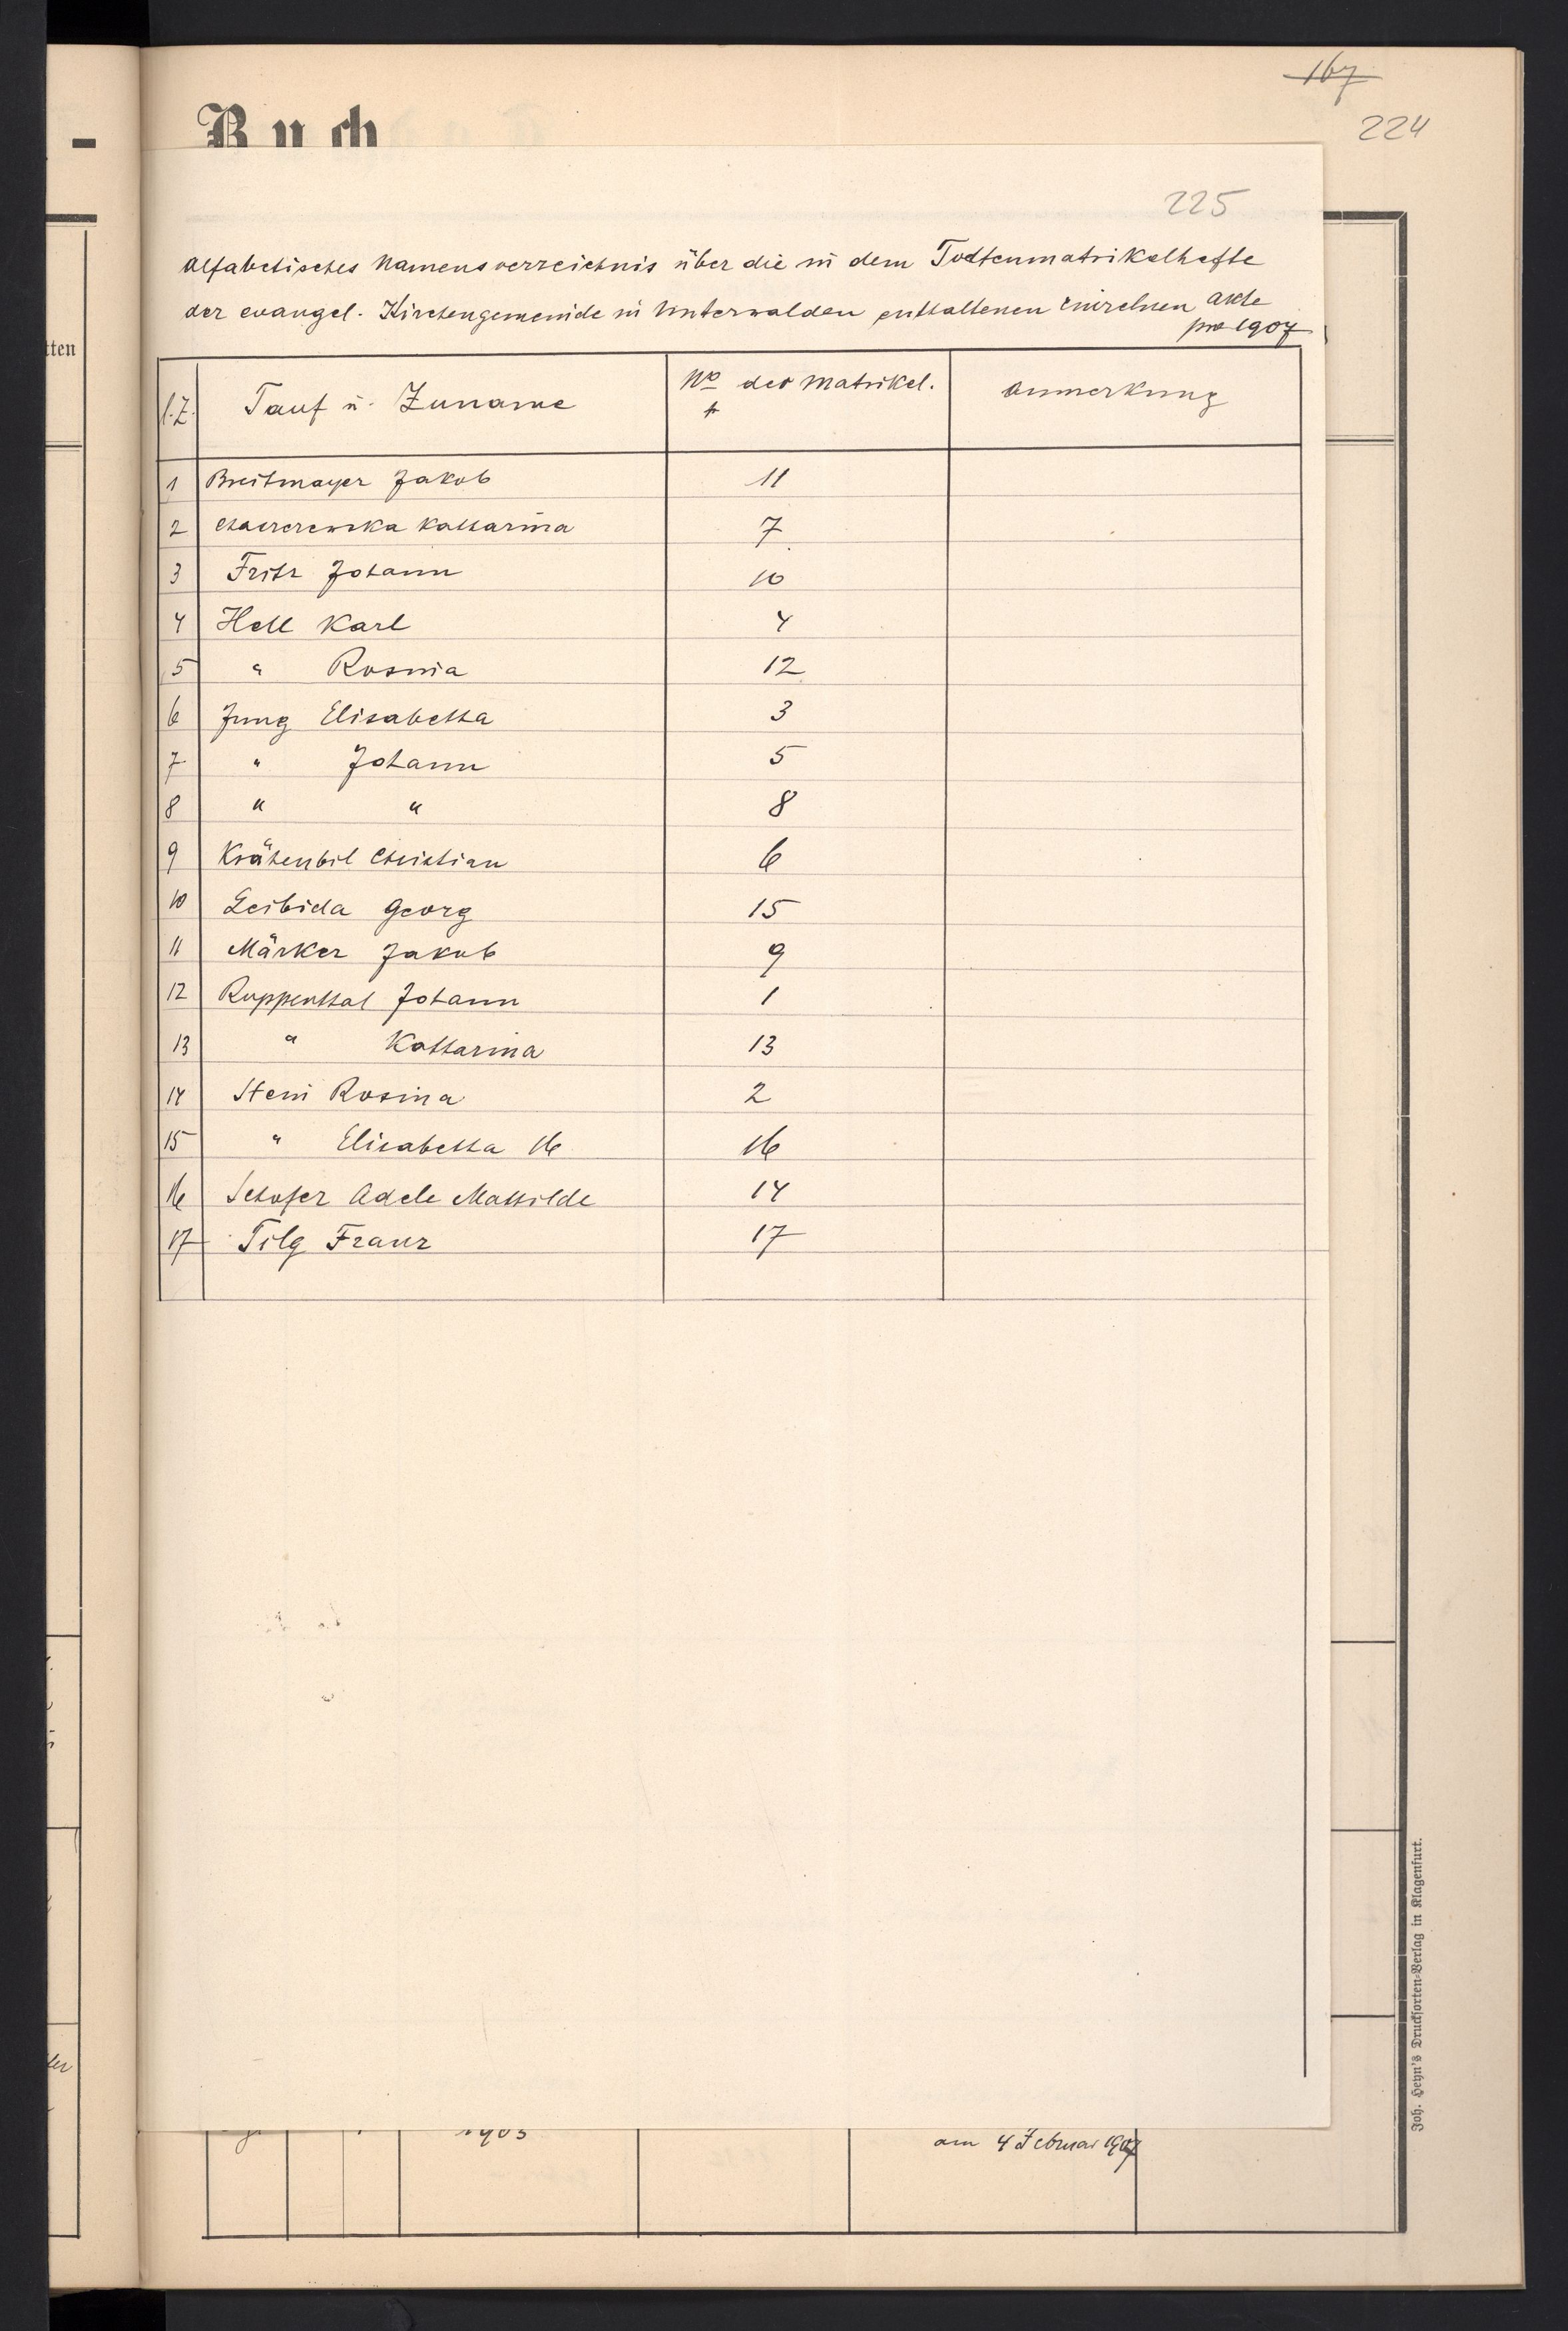 167
224
Buch
225
Alfabetisches Namensverzeichnis über die in dem Todtenmatrikelhefte
der evangel. Kirchengemeinde in Unterwalden enthaltenen einzelnen Akte
pro 1907
l.Z. Tauf u. Zuname No der Matrikel. Anmerkung
1 Breitmayer Jakob 11
2 Katharina 7
3 Fritz Johann 10
4 Hell Karl 4
5 " Rosina 12
6 Jung Elisabetha 3
7 " Johann 5
8 " " 8
9 Krähenbil Christian 6
10 Leibida Georg 15
11 Märker Jakob 9
12 Ruppenthal Johann 1
13 " Katharina 13
14 Stein Rosina 2
15 " Elisabetha 16 16
16 Schofer Adele Mathilde 14
17 Tilg Franz 17
tten
1903
am 4 Februar 1907
Joh. Heyn's Drucksorten-Verlag in Klagenfurt.